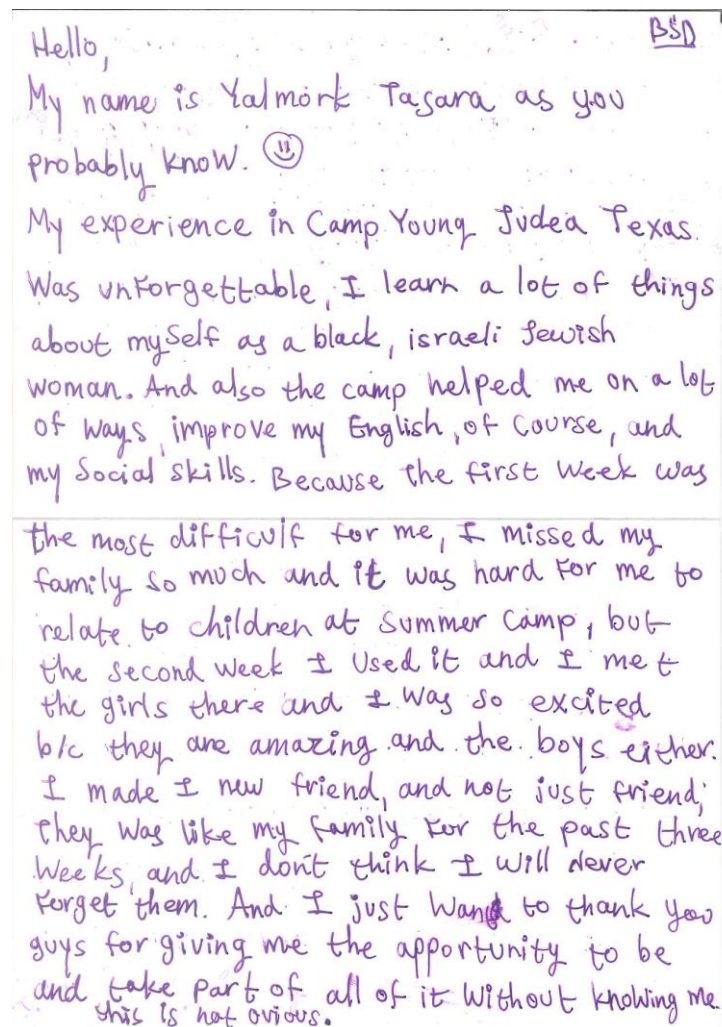 BSD
Hello,
My name is Yalmork Tasara as you
probably know.
My experience in Camp Young Judea Texas.
Was unforgettable, I learn a lot of things
about myself as a black, israeli Jewish
woman. And also the camp helped me on a lot
of ways, improve my English, of course, and
my Social skills. Because the first week was
the most difficult for me, I missed my
family so much and it was hard for me to
relate to children at summer camp, but
the second week I used it and I met
the girls there and I was so excited
b/c they are amazing and the boys either.
I made I new friend, and not just friend;
they was like my family for the past three
weeks, and I don't think I will never
forget them. And I just want to thank you
guys for giving me the apportunity to be
and take part of all of it without knowing me
this is not ovious.